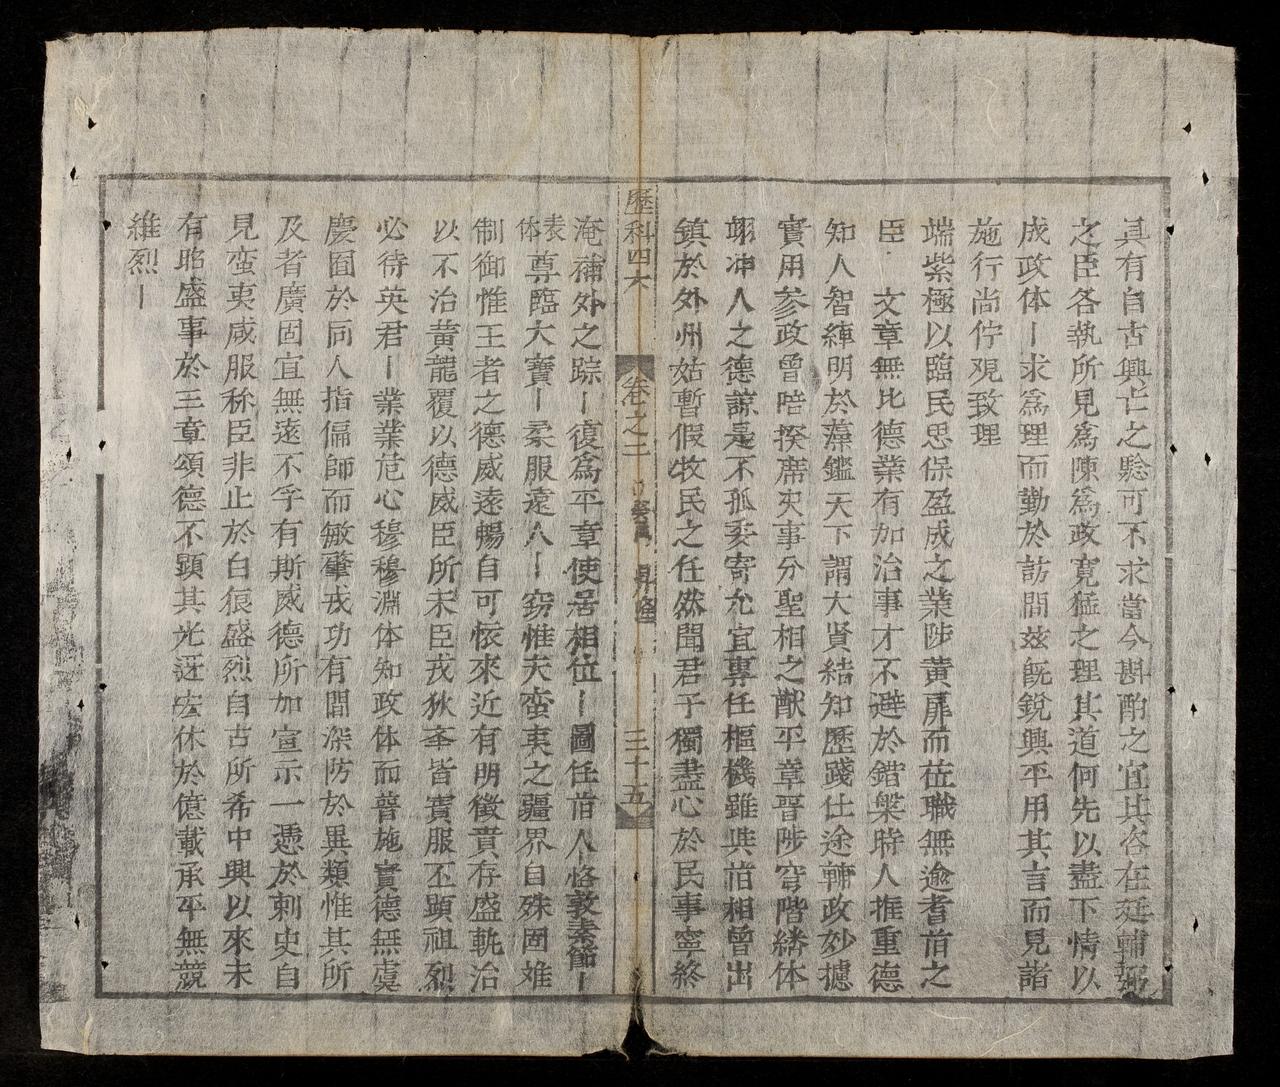 具有自古興亡之驗可不求當今斟酌之宜其各在廷輔弼
之臣各執所見爲陳爲政寛猛之理其道何先以盡下情以
成政体〡求爲理而勤於訪問玆旣銳興平用其言而見諸
施行尚佇覌致理
端紫極以臨民思保盈成之業陟黄扉而莅職無逾耆𦻀之
臣 文章無比德業有加治事才不避於錯槃時人推重德
知人智練明於藻鑑天下謂大賢結知歷踐仕途輔政妙攄
實用參政曾陪揆席史事分聖相之猷平章晋陟穹階綉体
翊冲人之德諒是不孤委寄允宜專任樞機雖與𦻀相曾出
鎮於外州姑暫假牧民之任然聞君子獨盡心於民事寧終
歷科四六 卷之二 三十五
淹補外之踪〡復爲平章使居相位〡圖任𦻀人〡恪敦素節〡
表体 尊臨大寶〡柔服遠人〡窃惟夫蛮夷之疆界自殊固难
制御惟王者之德威遠暢自可懷來近有明徵賁存盛軌治
以不治黄龍覆以德威臣所未臣戎狄夲皆賓服丕顕祖烈
必待英君〡業業危心穆穆淵体知政体而普施實德無虞
慶囿於同人指偏師而敏肇戎功有間深防於異類惟其所
及者廣固宜無遠不孚有斯威德所加宣示一憑於刺史自
見蛮夷咸服称臣非止於白狼盛烈自古所希中興以來未
有昭盛事於三章頌德不顕其光迓宏休於億載承平無競
維烈〡